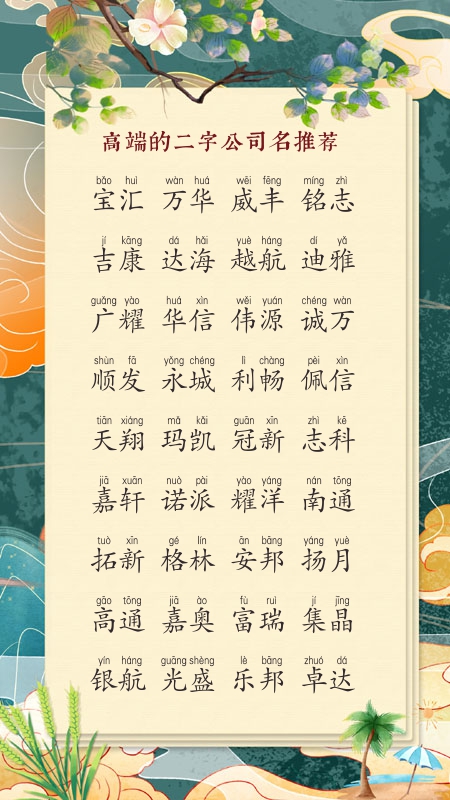 高端的二字公司名推荐
bǎo huì wàn huá wēi fēng míng zhì
宝汇 万华 威丰 铭志
jí kāng dá hǎi yuè háng dí yǎ
吉康 达海 越航 迪雅
guǎng yào huá xìn wěi yuán chéng wàn
广耀 华信 伟源 诚万
shùn fā yǒng chéng lì chàng pèi xìn
顺发 永城 利畅 佩信
tiān xiáng mǎ kǎi guān xīn zhì kē
天翔 玛凯 冠新 志科
jiā xuān nuò pài yào yáng nán tōng
嘉轩 诺派 耀洋 南通
tuò xīn gé lín ān bāng yáng yuè
拓新 格林 安邦 扬月
gāo tōng jiā ào fù ruì jí jīng
高通 嘉奥 富瑞 集晶
yín háng guāng shèng lè bāng zhuó dá
银航 光盛 乐邦 卓达